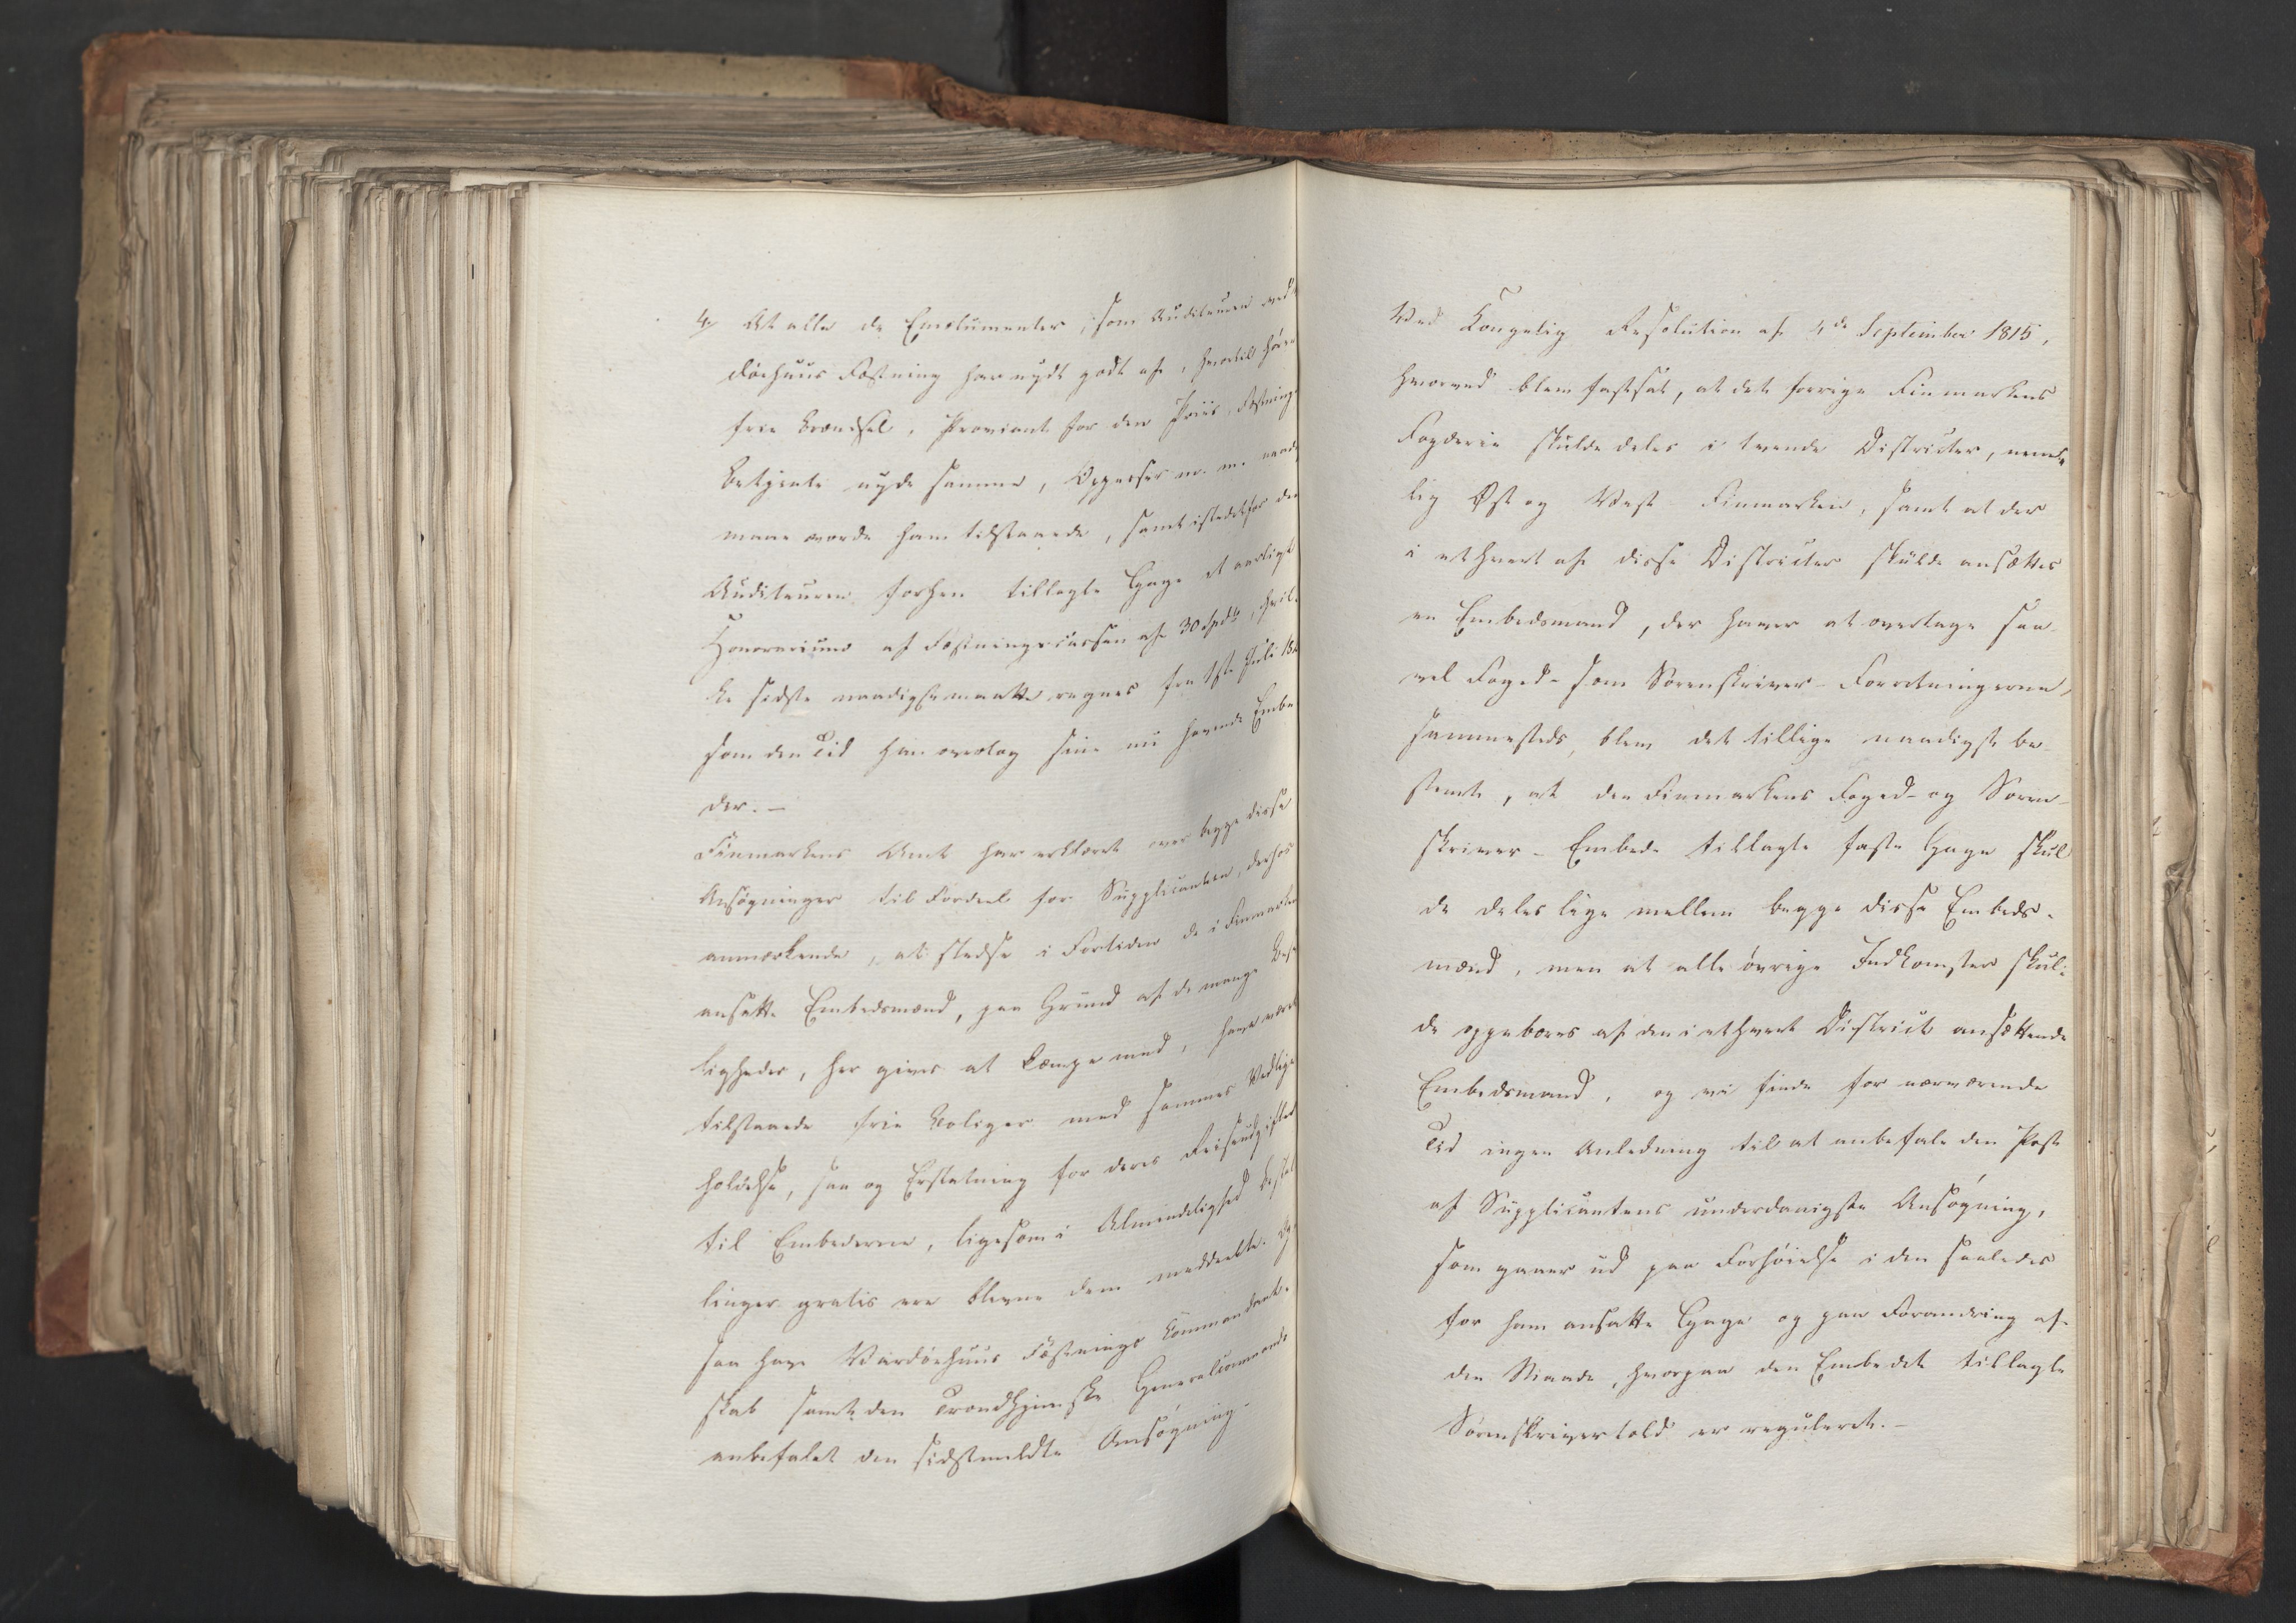 4, At alle de Emolumenter, som Auditeuren ved
döehuus Fæstning har nydt godt af, hvortil hörer
frie Brændsel, Proviant for den Priis Fæstnings
Betjente nyde samme, Oppasser m. m. naadigst
maae vorde ham tilstaaede, samt istedetfor den
Auditeuren forhen tillagte Gage et aarligt
Honorarium af Fæstningscassen af 30 Spd, hvil-
ke sidste naadigst maatte regnes fra 1ste Juli 18
som den Tid han overtog sine nu havende Embe
der.-
Finmarkens Amt har erklæret over begge disse
Ansøgninger til Fordeel for Supplicanten, derhos
anmærkende, at stedse i Fortiden de i Finmarken
ansatte Embedsmænd, paa Grund af de mange Besv
ligheder, her gives at kæmpe med, have været
tilstaaede frie Boliger med sammes Vedlige
holdelse, saa og Erstatning for deres Reiseudgifter
til Embederne, ligesom i Almindelighed Bestal
linger gratis ere blevne dem meddeelte. Og-
saa have Vardöehuus Fæstnings Commandant-
skab samt den Trondhjemske Generalcommando
anbefalet den sidstmeldte Ansøgning.-
Ved Kongelig Resolution af 4de September 1815,
hvorved blev fastsat, at det forrige Finmarkens
Fogderie skulde deles i tvende Districter, neml-
lig Øst og Vest Finmarken, samt at der
i ethvert af disse Districter skulde ansættes
en Embedsmand, der haver at overtage saa-
vel Foged- som Sorenskriver-Forretningerne
sammesteds, blev det tillige naadigst be-
stemt, at den Finmarkens Foged- og Soren-
skriver-Embede tillagte faste Gage skul
de deles lige mellem begge disse Embeds-
mænd, men at alle övrige Indkomster skul-
de oppebæres af den i ethvert District ansættende
Embedsmand, og vi finde for nærværende
Tid ingen Anledning til at anbefale den Post
af Supplicantens underdanigste Ansøgning,
som gaaer ud paa Forhöielse i den saaledes
for ham ansatte Gage og paa Forandring af
den Maade, hvorpaa den Embedet tillagte
Sorenskrivertold er reguleret.-